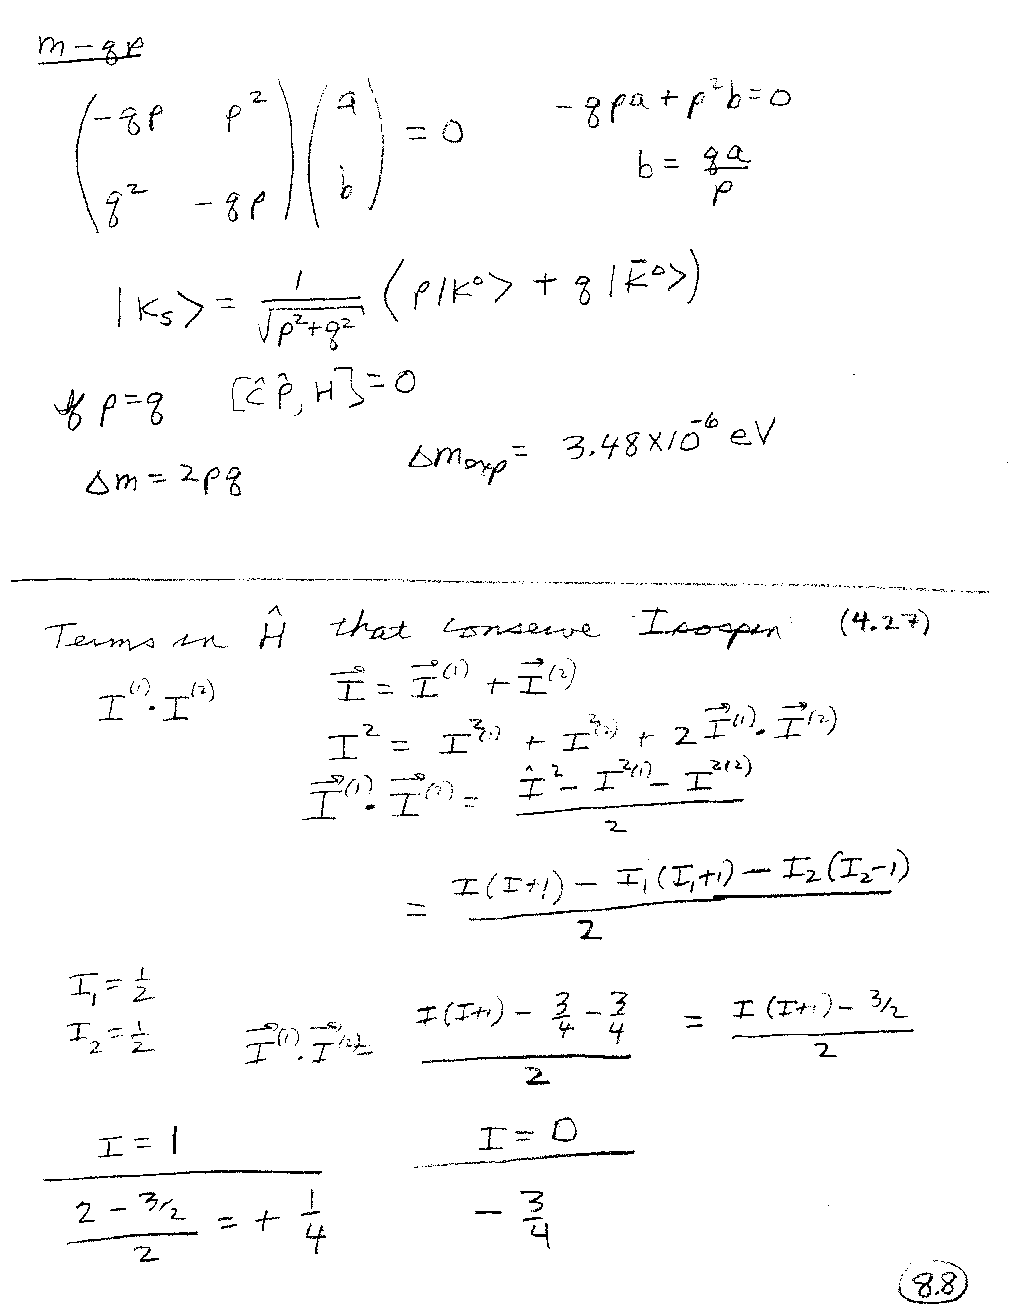 m - qp
(-qp p²) (a) = 0   -qpa + p²b = 0
(q² -qp) (b)   b = qa/p
|K_S> = 1/√(p²+q²) (p|K⁰> + q|K̄⁰>)
if p=q [ĈP̂, H] = 0
Δm = 2pq   Δm_exp = 3.48×10⁻⁶ eV
Terms in Ĥ that conserve Isospin (4.27)
I⁽¹⁾·I⁽²⁾   I⃗ = I⃗⁽¹⁾ + I⃗⁽²⁾
I² = I²⁽¹⁾ + I²⁽²⁾ + 2 I⃗⁽¹⁾·I⃗⁽²⁾
I⃗⁽¹⁾·I⃗⁽²⁾ = (Î² - I²⁽¹⁾ - I²⁽²⁾)/2
= (I(I+1) - I₁(I₁+1) - I₂(I₂-1))/2
I₁ = 1/2
I₂ = 1/2   I⃗⁽¹⁾·I⃗⁽²⁾ = (I(I+1) - 3/4 - 3/4)/2 = (I(I+1) - 3/2)/2
I = 1   I = 0
(2 - 3/2)/2 = + 1/4   - 3/4
8.8